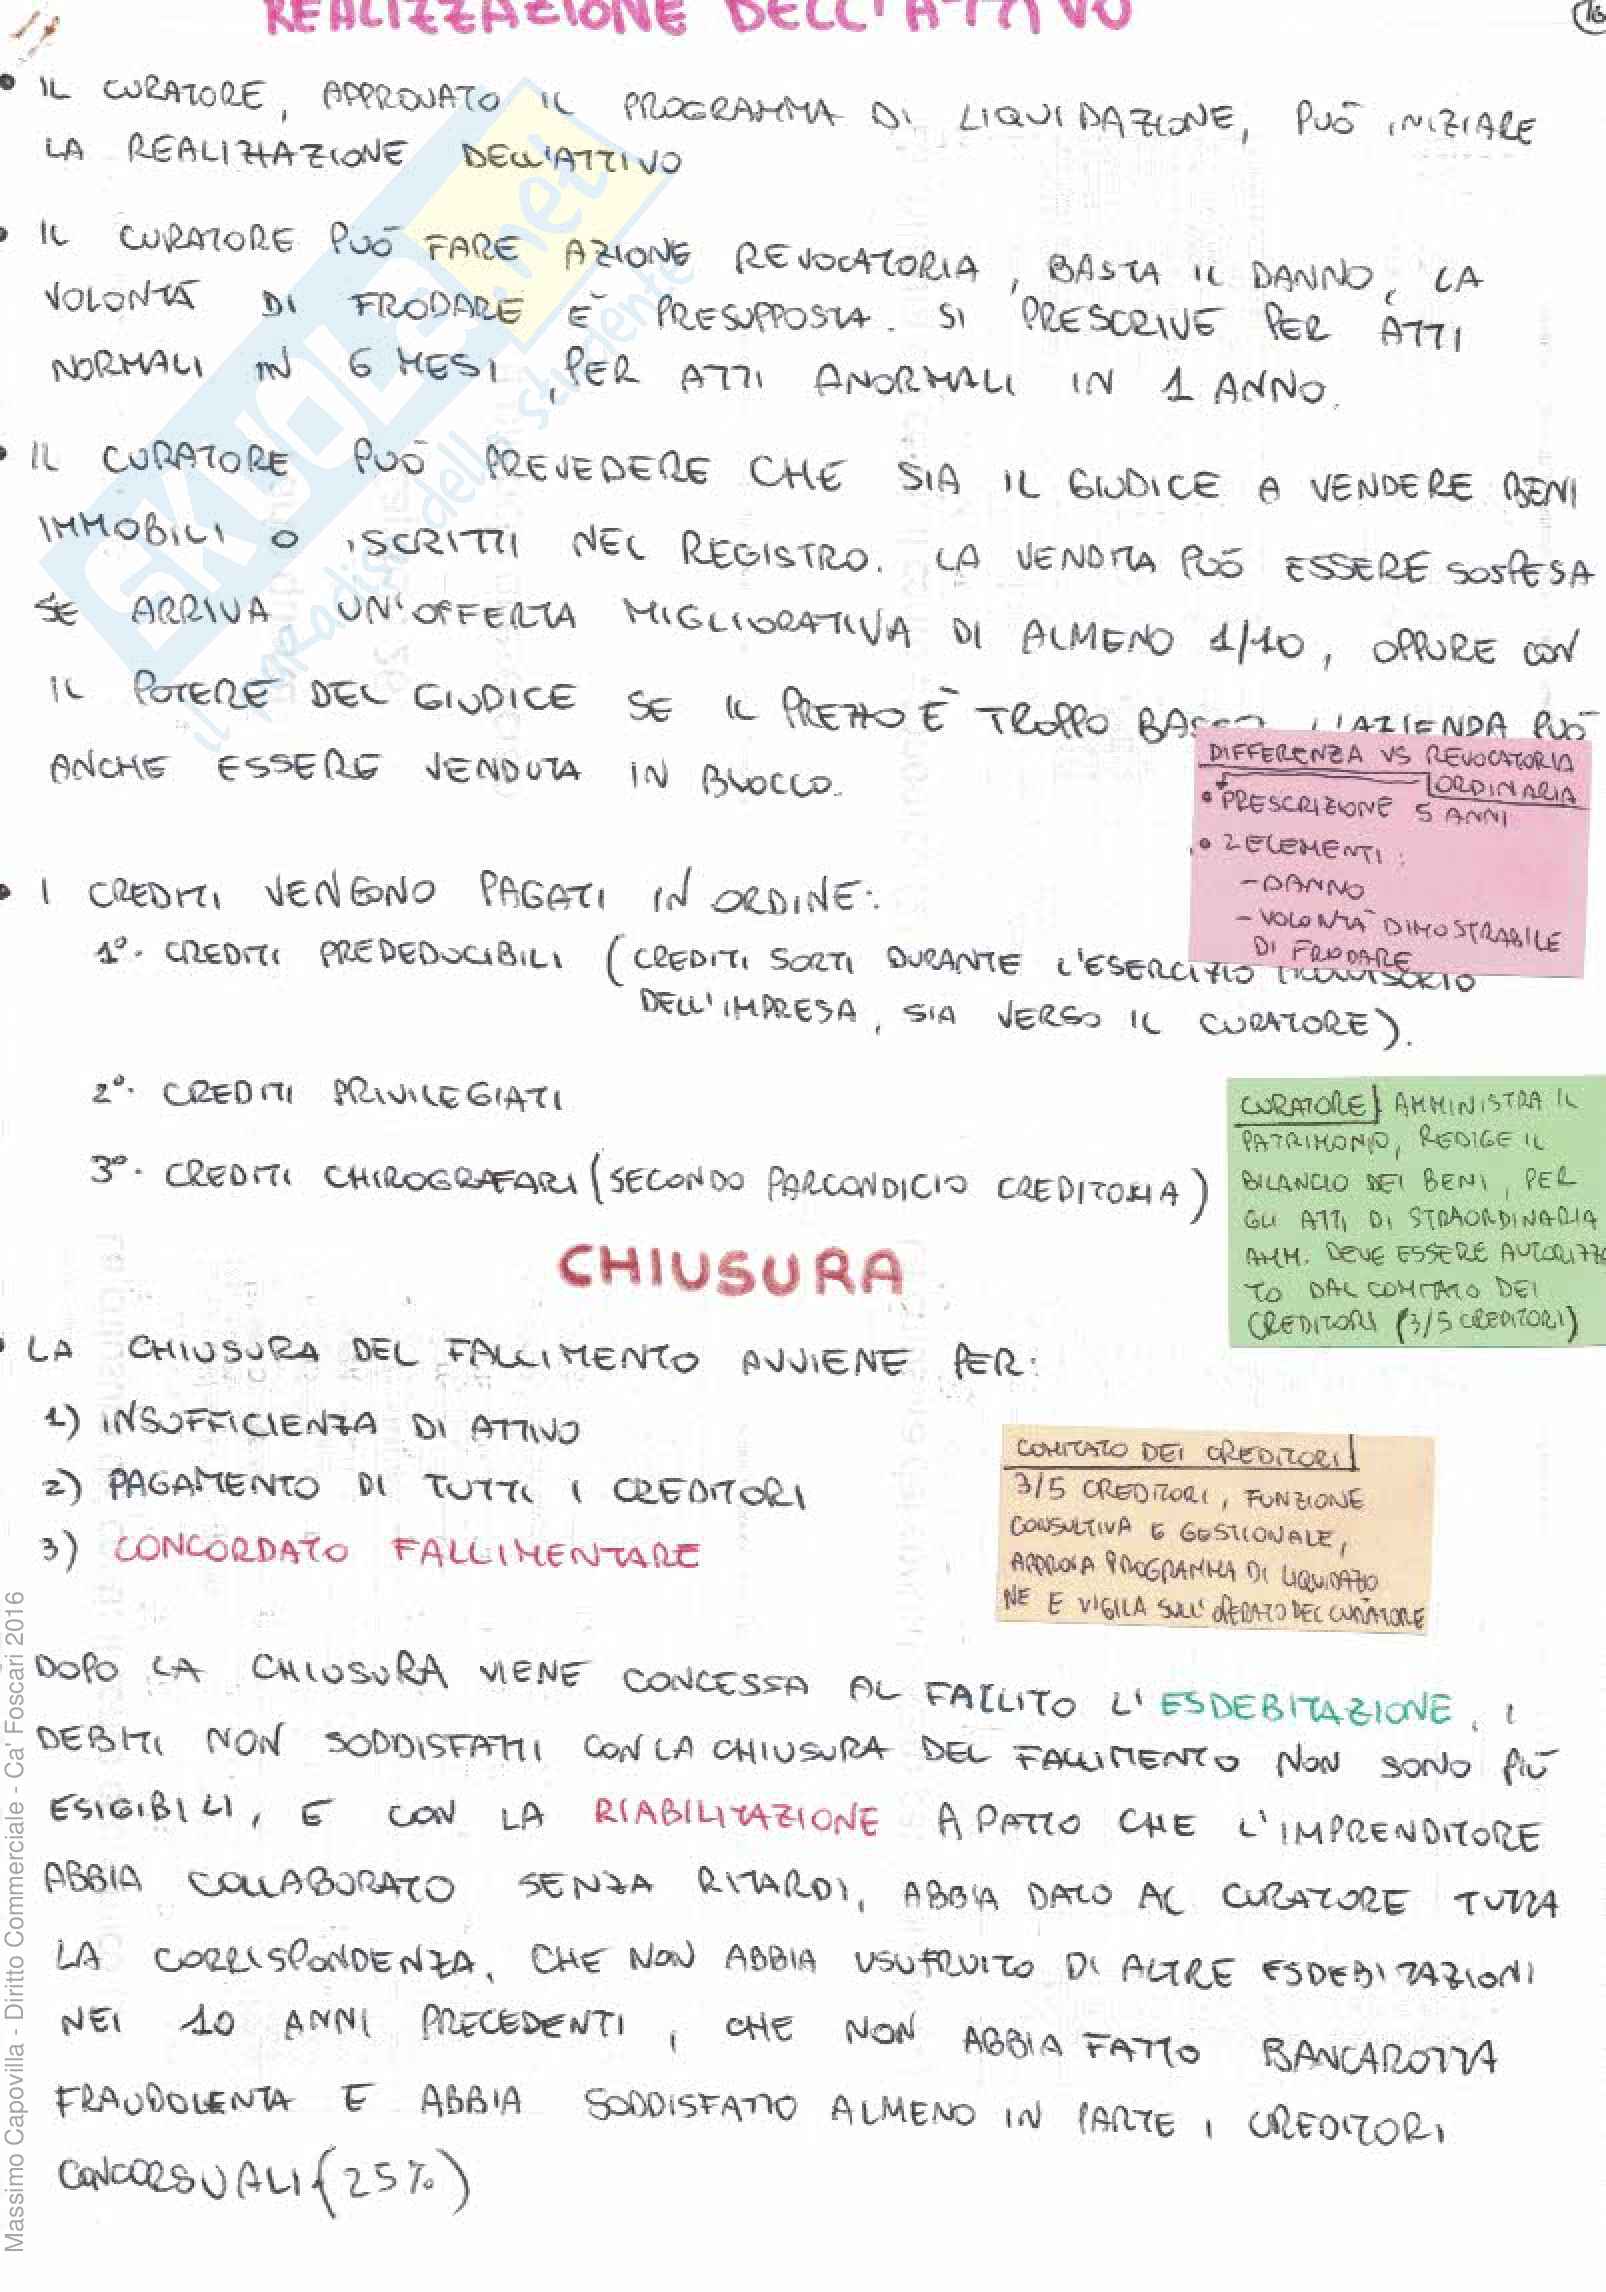 REALIZZAZIONE DELL'ATTIVO
• IL CURATORE, APPROVATO IL PROGRAMMA DI LIQUIDAZIONE, PUÒ INIZIARE
LA REALIZZAZIONE DELL'ATTIVO
• IL CURATORE PUÒ FARE AZIONE REVOCATORIA, BASTA IL DANNO, LA
VOLONTÀ DI FRODARE È PRESUPPOSTA. SI PRESCRIVE PER ATTI
NORMALI IN 6 MESI, PER ATTI ANORMALI IN 1 ANNO.
• IL CURATORE PUÒ PREVEDERE CHE SIA IL GIUDICE A VENDERE BENI
IMMOBILI O ISCRITTI NEL REGISTRO. LA VENDITA PUÒ ESSERE SOSPESA
SE ARRIVA UN'OFFERTA MIGLIORATIVA DI ALMENO 1/10, OPPURE CON
IL POTERE DEL GIUDICE SE IL PREZZO È TROPPO L'AZIENDA PUÒ
ANCHE ESSERE VENDUTA IN BLOCCO.
DIFFERENZA VS REVOCATORIA
ORDINARIA
• PRESCRIZIONE 5 ANNI
• 2 ELEMENTI:
- DANNO
- VOLONTÀ DIMOSTRABILE
DI FRODARE
• I CREDITI VENGONO PAGATI IN ORDINE:
1°. CREDITI PREDEDUCIBILI (CREDITI SORTI DURANTE L'ESERCIZIO PROVVISORIO
DELL'IMPRESA, SIA VERSO IL CURATORE).
2°. CREDITI PRIVILEGIATI
3°. CREDITI CHIROGRAFARI (SECONDO PARCONDICIO CREDITORIA)
CURATORE AMMINISTRA IL
PATRIMONIO, REDIGE IL
BILANCIO DEI BENI, PER
GLI ATTI DI STRAORDINARIA
AMM. DEVE ESSERE AUTORIZZA
TO DAL COMITATO DEI
CREDITORI (3/5 CREDITORI)
CHIUSURA
• LA CHIUSURA DEL FALLIMENTO AVVIENE PER:
1) INSUFFICIENZA DI ATTIVO
2) PAGAMENTO DI TUTTI I CREDITORI
3) CONCORDATO FALLIMENTARE
COMITATO DEI CREDITORI
3/5 CREDITORI, FUNZIONE
CONSULTIVA E GESTIONALE,
APPROVA PROGRAMMA DI LIQUIDAZIO
NE E VIGILA SULL'OPERATO DEL CURATORE
DOPO LA CHIUSURA VIENE CONCESSA AL FALLITO L'ESDEBITAZIONE, I
DEBITI NON SODDISFATTI CON LA CHIUSURA DEL FALLIMENTO NON SONO PIÙ
ESIGIBILI, E CON LA RIABILITAZIONE A PATTO CHE L'IMPRENDITORE
ABBIA COLLABORATO SENZA RITARDI, ABBIA DATO AL CURATORE TUTTA
LA CORRISPONDENZA, CHE NON ABBIA USUFRUITO DI ALTRE ESDEBITAZIONI
NEI 10 ANNI PRECEDENTI, CHE NON ABBIA FATTO BANCAROTTA
FRAUDOLENTA E ABBIA SODDISFATTO ALMENO IN PARTE I CREDITORI
CONCORSUALI (25%)
SKUOLA.net
il paradiso dello studente
Massimo Capovilla - Diritto Commerciale - Ca' Foscari 2016